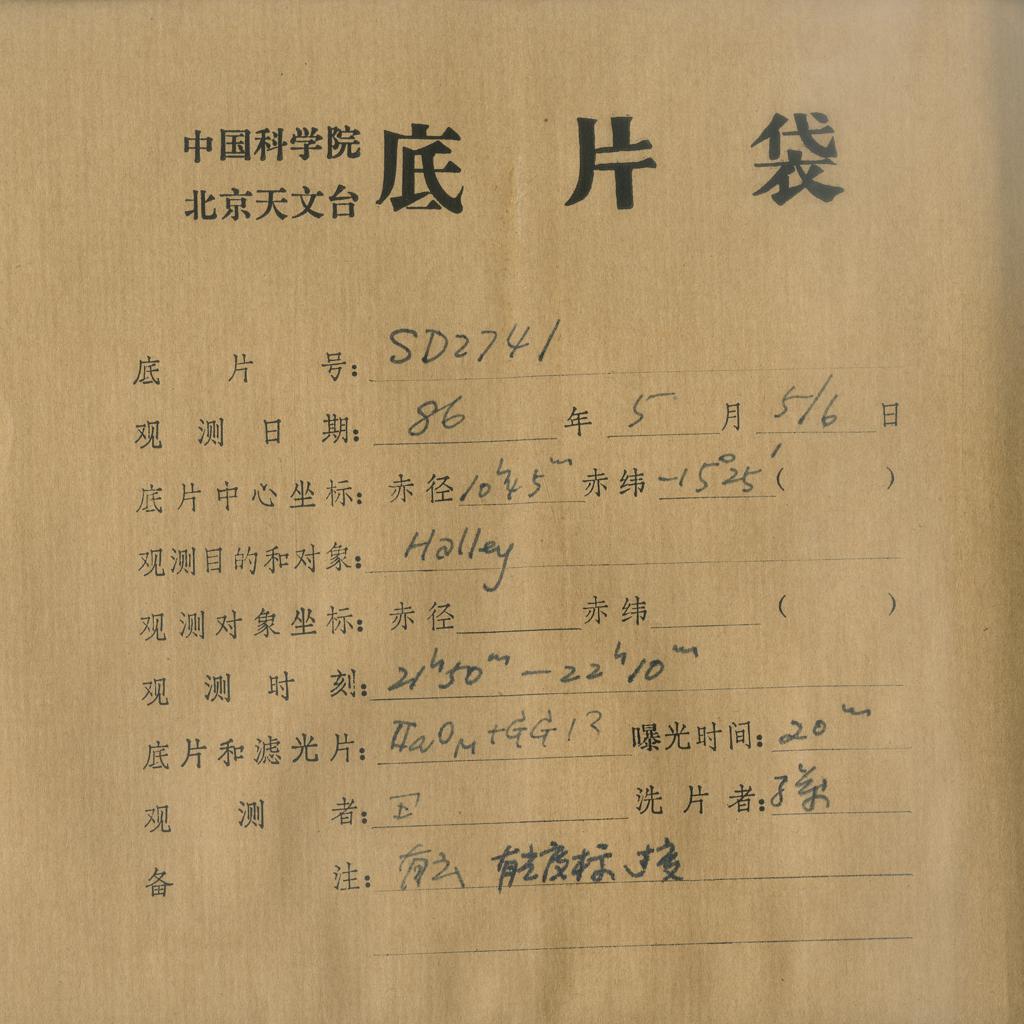 中国科学院
北京天文台
底片袋
底片号: SD2741
观测日期: 86 年 5 月 5/6 日
底片中心坐标: 赤径 10h45m 赤纬 -15°25′ ( )
观测目的和对象: Halley
观测对象坐标: 赤径 赤纬 ( )
观测时刻: 21h50m — 22h10m
底片和滤光片: IIaOM+GG13 曝光时间: 20m
观测者: 洗片者:
备注: 有云 有光度标